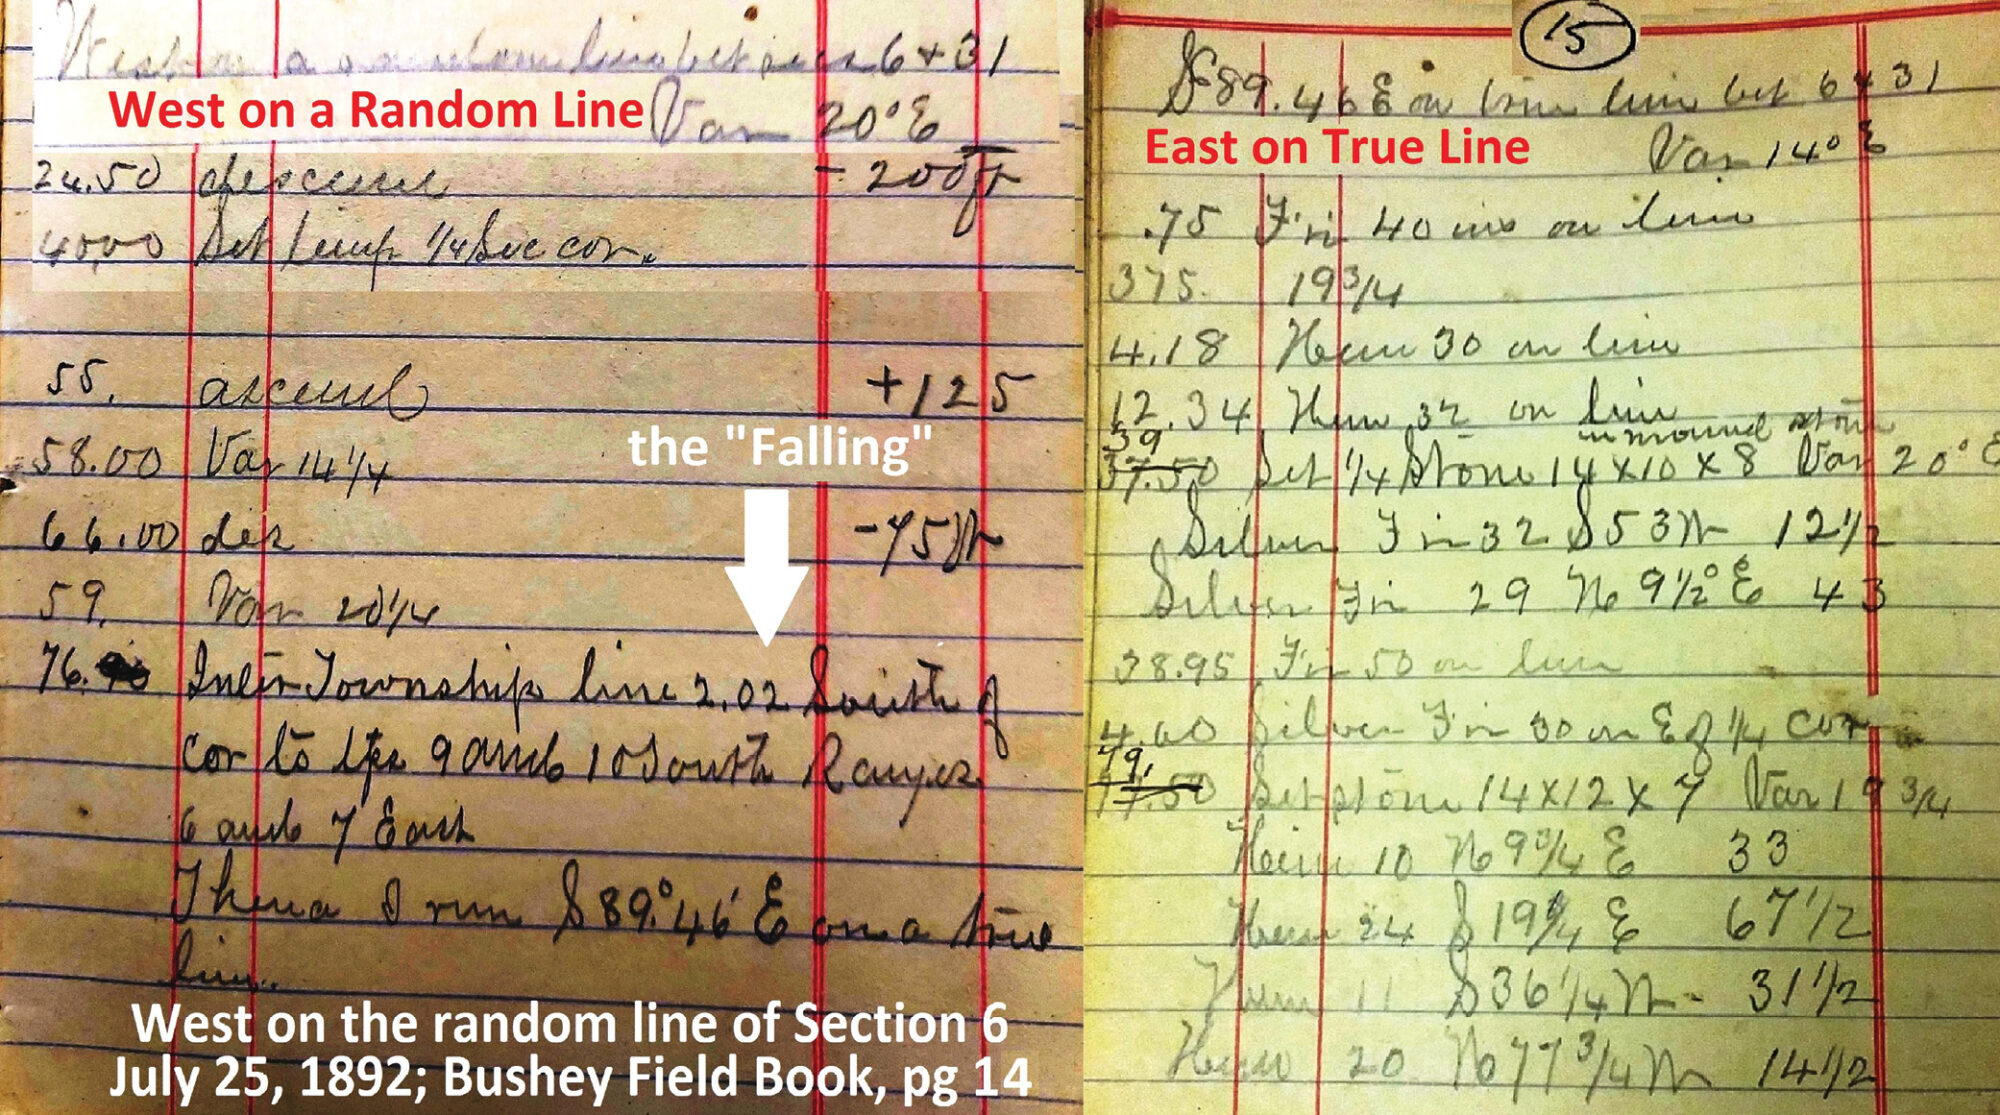 West on a random line between 6 + 31
West on a Random Line
Var 20° E
24.50 descend - 200 ft
40.00 Set temp 1/4 Sec cor.
55. ascend +125
58.00 Var 14 1/4
the "Falling"
66.00 des -75
59. Var 20 1/4
76. Inter Township line 2.02 South of
cor to tps 9 and 10 South Ranges
6 and 7 East
Thence I run S 89° 46' E on a true
line.
West on the random line of Section 6
July 25, 1892; Bushey Field Book, pg 14
15
S 89.46 E on true line bet 6 & 31
East on True Line
Var 14° E
.75 Fir 40 ins on line
375. 19 3/4
4.18 Hem 30 on line
12.34 Hem 32 on line
in mound stone
39
37.50 Set 1/4 Stone 14 x 10 x 8 Var 20° E
Silver Fir 32 S 53 W 12 1/2
Silver Fir 29 N 9 1/2° E 43
38.95 Fir 50 on line
4.00 Silver Fir 30 on E of 1/4 Cor
79.
77.50 Set stone 14 x 12 x 7 Var 19 3/4
Hem 10 N 9 3/4 E 33
Hem 24 S 19 1/4 E 67 1/2
Hem 11 S 36 1/4 W - 31 1/2
Hem 20 N 77 3/4 W 14 1/2